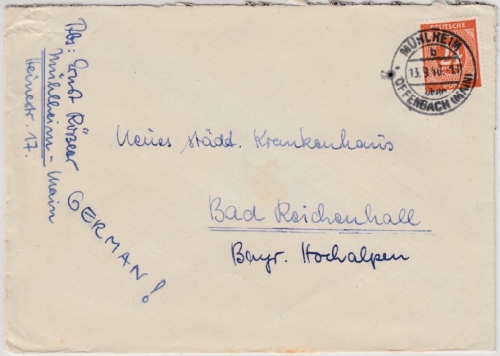 Abs: Ernst Rößler
Mühlheim-Main
Heinestr. 17.
GERMAN!
DEUTSCHE
MÜHLHEIM
b
OFFENBACH (MAIN)
Neues städt. Krankenhaus
Bad Reichenhall
Bayr. Hochalpen